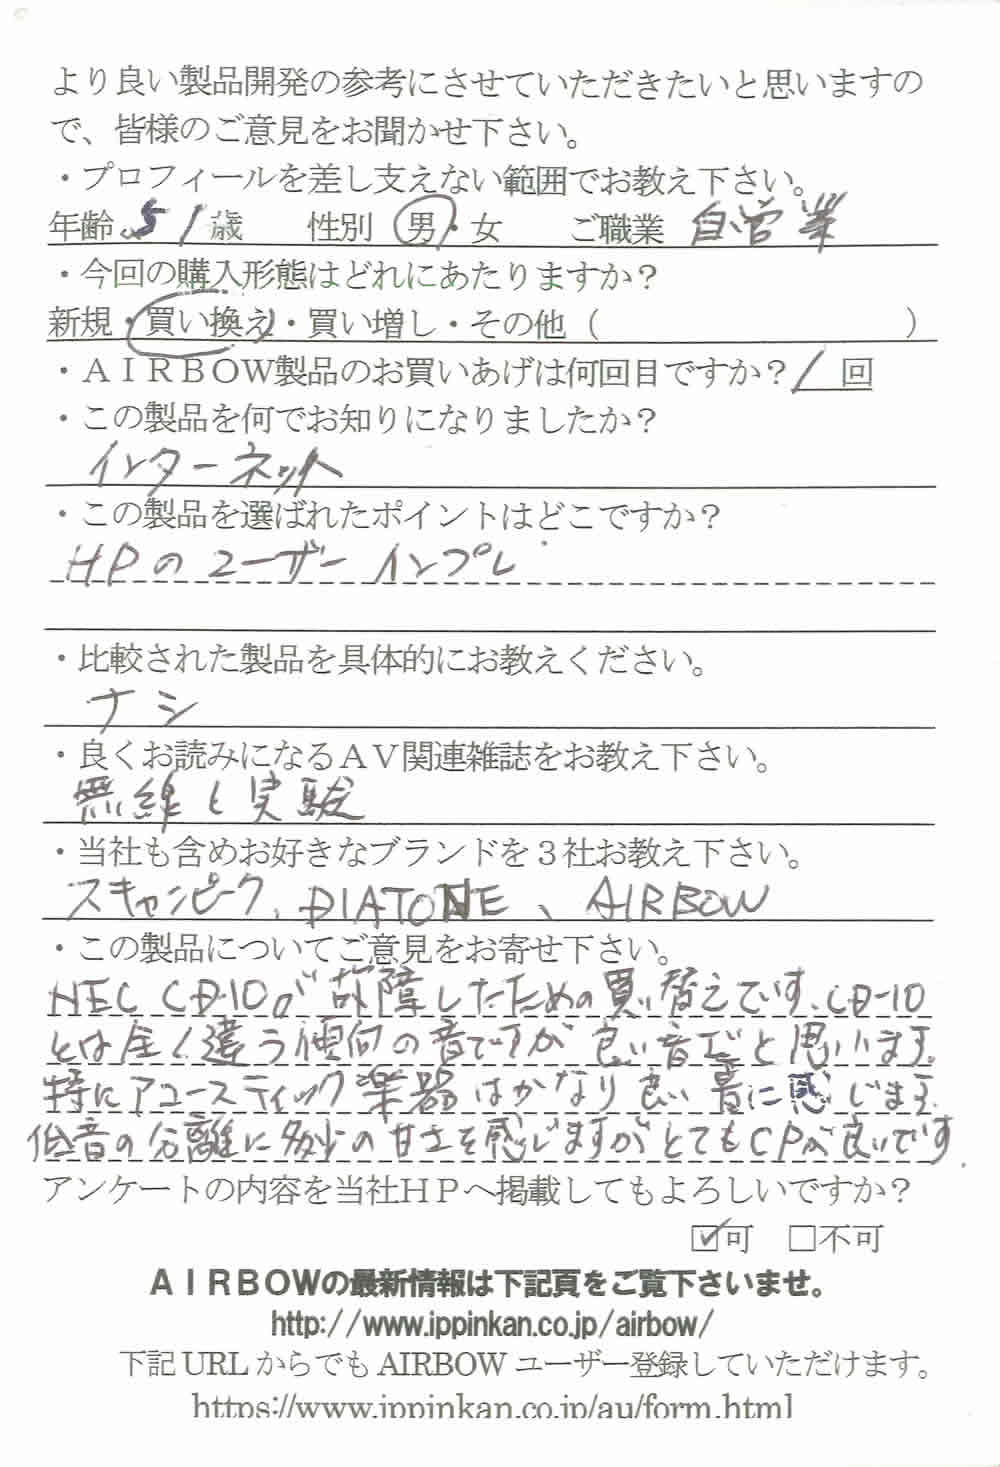 より良い製品開発の参考にさせていただきたいと思いますの
で、皆様のご意見をお聞かせ下さい。
・プロフィールを差し支えない範囲でお教え下さい。
年齢 51 歳 性別 男・女 ご職業 自営業
・今回の購入形態はどれにあたりますか?
新規・買い換え・買い増し・その他（ ）
・ＡＩＲＢＯＷ製品のお買いあげは何回目ですか? 1 回
・この製品を何でお知りになりましたか?
インターネット
・この製品を選ばれたポイントはどこですか?
HPのユーザーインプレ
・比較された製品を具体的にお教えください。
ナシ
・良くお読みになるＡＶ関連雑誌をお教え下さい。
無線と実験
・当社も含めお好きなブランドを３社お教え下さい。
スキャンピーク、DIATONE、AIRBOW
・この製品についてご意見をお寄せ下さい。
NEC CD-10が故障したための買い替えです。CD-10
とは全く違う傾向の音ですが良い音だと思います。
特にアコースティック楽器はかなり良い音に感じます。
低音の分離に多少の甘さを感じますがとてもCPが良いです。
アンケートの内容を当社ＨＰへ掲載してもよろしいですか?
☑可 □不可
ＡＩＲＢＯＷの最新情報は下記頁をご覧下さいませ。
http://www.ippinkan.co.jp/airbow/
下記 URL からでも AIRBOW ユーザー登録していただけます。
https://www.ippinkan.co.jp/au/form.html